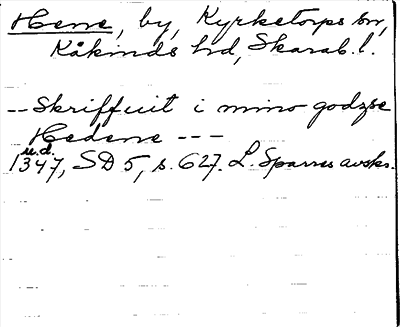 Hene, by, Kyrketorps sn,
Kåkinds hd, Skarab. l.
-- Skriffuit i mino godzse
Hedene ---
u.d.
1347, SD 5, s. 627. L. Sparres avskr.